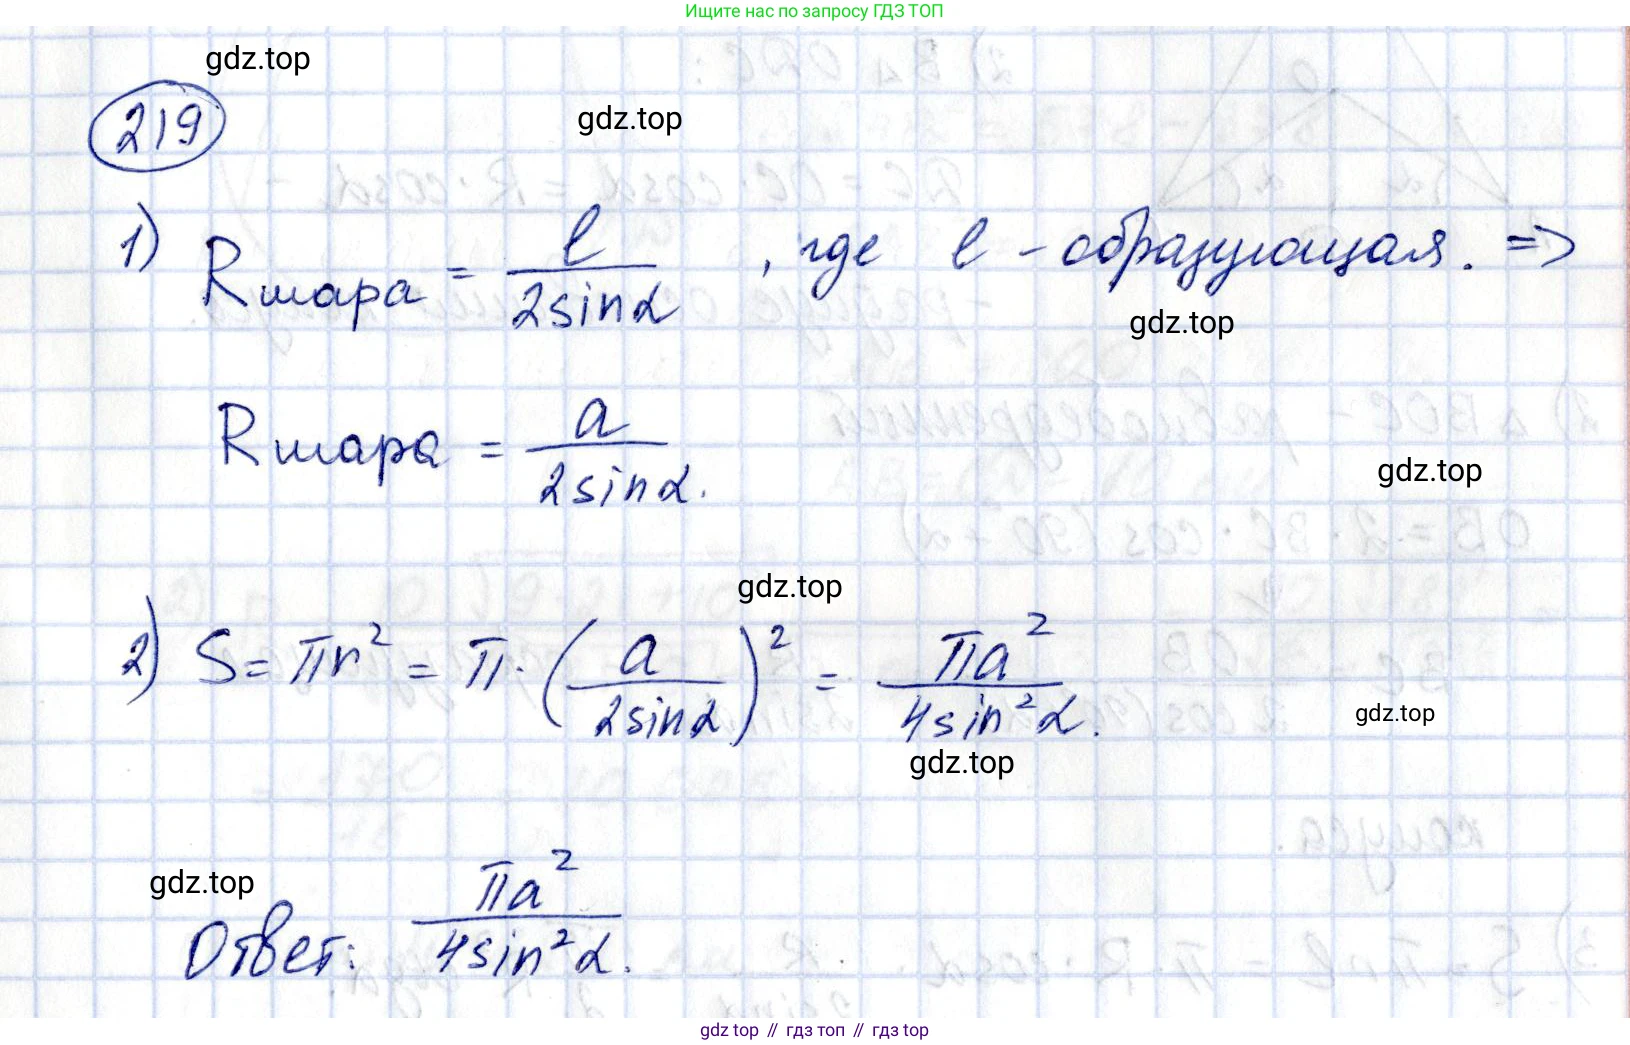 Ищите нас по запросу ГДЗ ТОП
gdz.top
219
gdz.top
1) Rшара = l/(2sinα), где l - образующая. =>
gdz.top
Rшара = a/(2sinα).
gdz.top
gdz.top
2) S = πr² = π·(a/(2sinα))² = πa²/(4sin²α).
gdz.top
gdz.top
gdz.top
Ответ: πa²/(4sin²α).
gdz top // гдз топ // гдз top